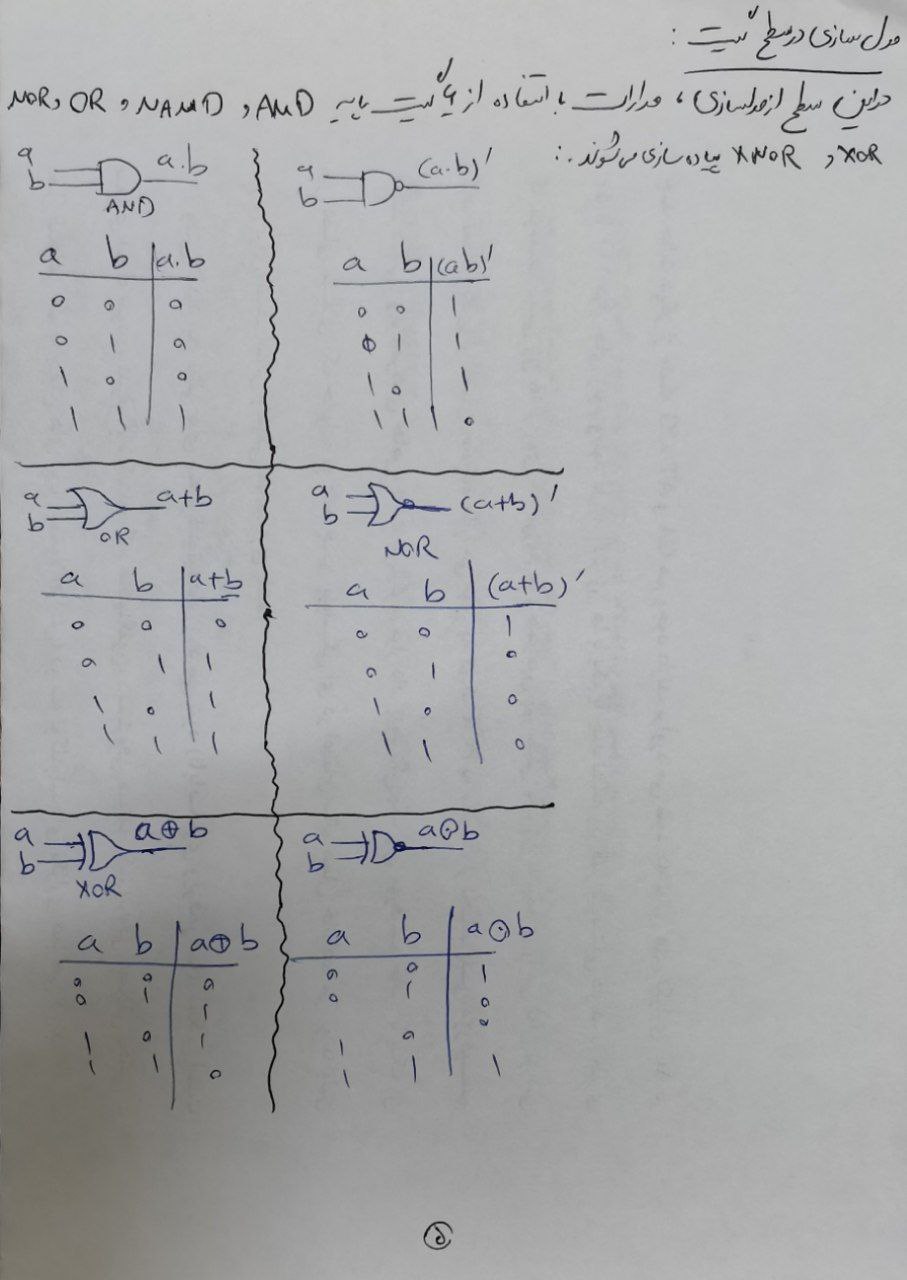 مدل سازی در سطح گیت :
در این سطح از مدلسازی ، مدارات با استفاده از 6 گیت پایه AND و NAND و OR و NOR
و XOR و XNOR پیاده سازی می شوند . :
a
b
a.b
AND
a b a.b
0 0 0
0 1 0
1 0 0
1 1 1
a
b
(a.b)'
a b (ab)'
0 0 1
0 1 1
1 0 1
1 1 0
a
b
a+b
OR
a b a+b
0 0 0
0 1 1
1 0 1
1 1 1
a
b
(a+b)'
NOR
a b (a+b)'
0 0 1
0 1 0
1 0 0
1 1 0
a
b
a⊕b
XOR
a b a⊕b
0 0 0
0 1 1
1 0 1
1 1 0
a
b
a⊙b
a b a⊙b
0 0 1
0 1 0
1 0 0
1 1 1
۵